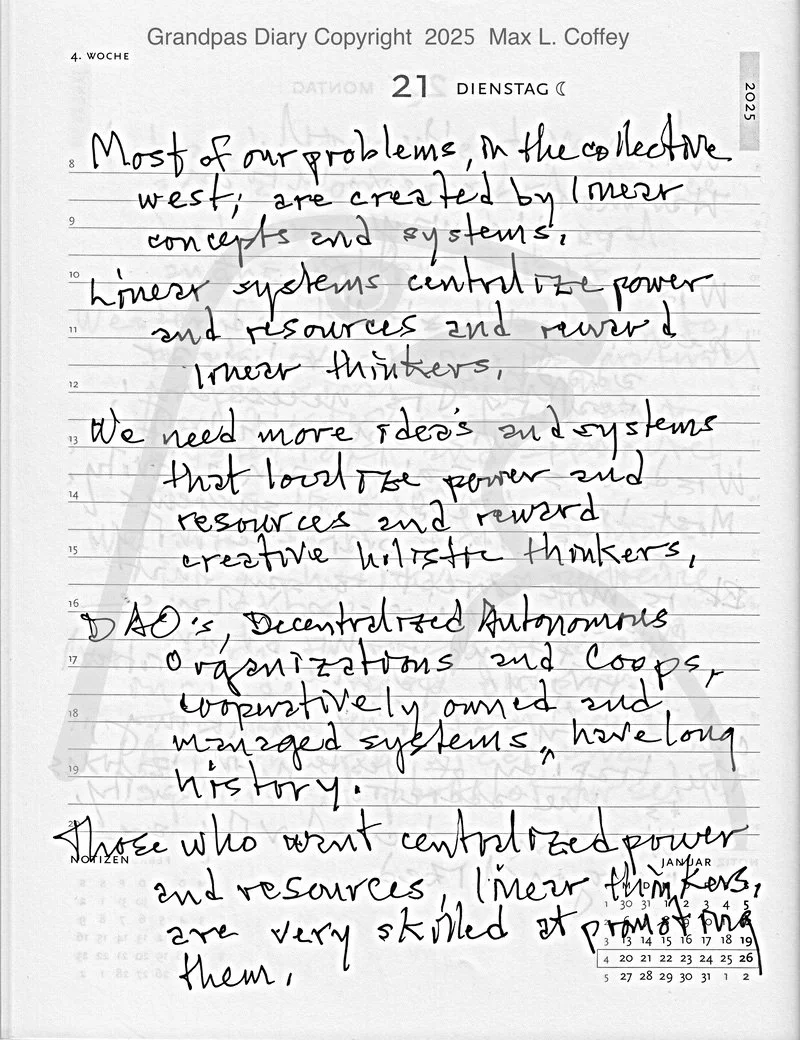 Grandpas Diary Copyright 2025 Max L. Coffey
4. WOCHE
21 DIENSTAG
2025
8 Most of our problems, in the collective
west; are created by linear
9 concepts and systems.
10 Linear systems centralize power
11 and resources and reward
12 linear thinkers.
13 We need more idea's and systems
that localize power and
14 resources and reward
15 creative hilistic thinkers.
16 DAO's, Decentralized Autonomous
17 Organizations and Coops,
18 cooperatively owned and
managed systems, ^ have long
19 history.
Those who want centralized power
NOTIZEN JANUAR
and resources, linear thinkers,
are very skilled at promoting
them.
1 30 31 1 2 3 4 5
3 13 14 15 16 17 18 19
4 20 21 22 23 24 25 26
5 27 28 29 30 31 1 2